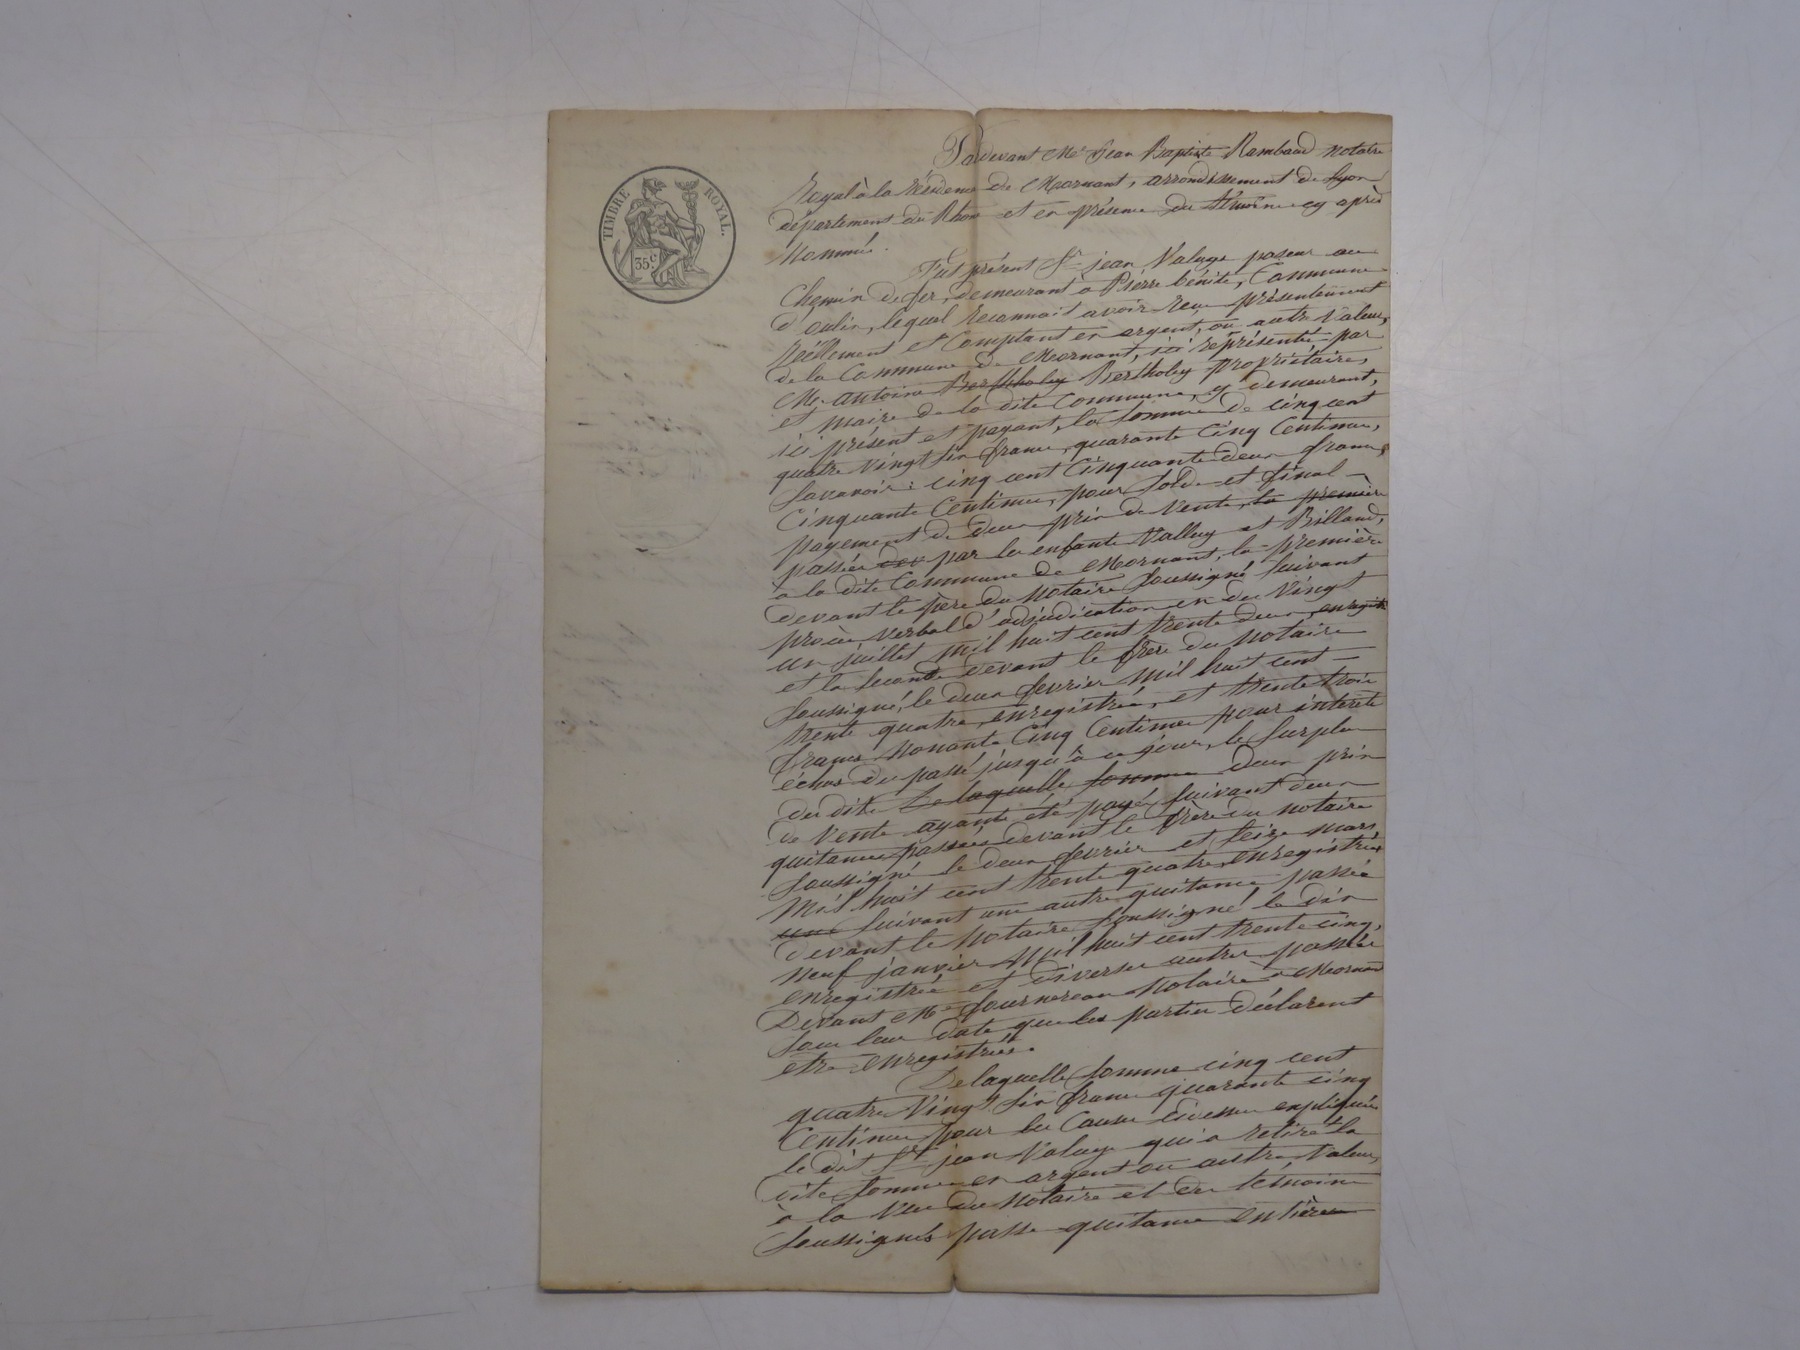 TIMBRE ROYAL.
35c
Pardevant Me Jean Baptiste Rambaud notaire
Royal à la Résidence de Mornant, arrondissement de Lyon
département du Rhône et en présence du témoins cy après
Nommés.
Fut présent Sr jean Valuy poseur au
Chemin de fer, demeurant a Pierre bénite, Commune
d'oulin, lequel reconnait avoir reçu présentement
Réellement et Comptant en argent, ou autre valeur,
de la Commune de Mornant, ici représentée par
Mr. antoine Bertholey Bertholey propriétaire,
et maire de la dite Commune, y demeurant,
ici présent et payant, la Somme de cinq cent
quatre vingt six francs, quarante Cinq Centimes,
Savavoir : cinq cent Cinquante deux francs,
Cinquante Centimes, pour Solde et final
payement de deux prix de Vente, la première
passée par les enfants Valluy et Billand,
a la dite Commune de Mornant, la première
devant le père du Notaire Soussigné Suivant
procès verbal d'adjudication en du Vingt
un juillet mil huit cent trente deux, enregistré
et la Seconde devant le frère du Notaire
Soussigné, le deux fevrier mil huit cent
trente quatre, enregistrée, et trente trois
francs Nonante Cinq Centimes pour intérêts
échus du passé jusqu'à ce jour, le Surplus
des dits De laquelle Somme deux prix
de Vente ayant été payés suivant deux
quitances passées devant le frère du notaire
Soussigné le deux fevrier et seize mars
Mil huit cent trente quatre, enregistrées
une suivant une autre quitance, passée
devant le Notaire Soussigné, le dix
Neuf janvier Mil huit cent trente cinq,
enregistrée et diverses autres passées
Devant Me Fournereau Notaire a Mornant
Sous leur date que les parties déclarent
être enregistrées.
De laquelle Somme cinq cent
quatre Vingt Six francs quarante cinq
Centimes pour les Causes expliquées
le dit Sr jean Valuy qui a retiré la
dite Somme en argent ou autre Valeur,
à la Vue du Notaire et des témoins
Soussignés passe quitance entière